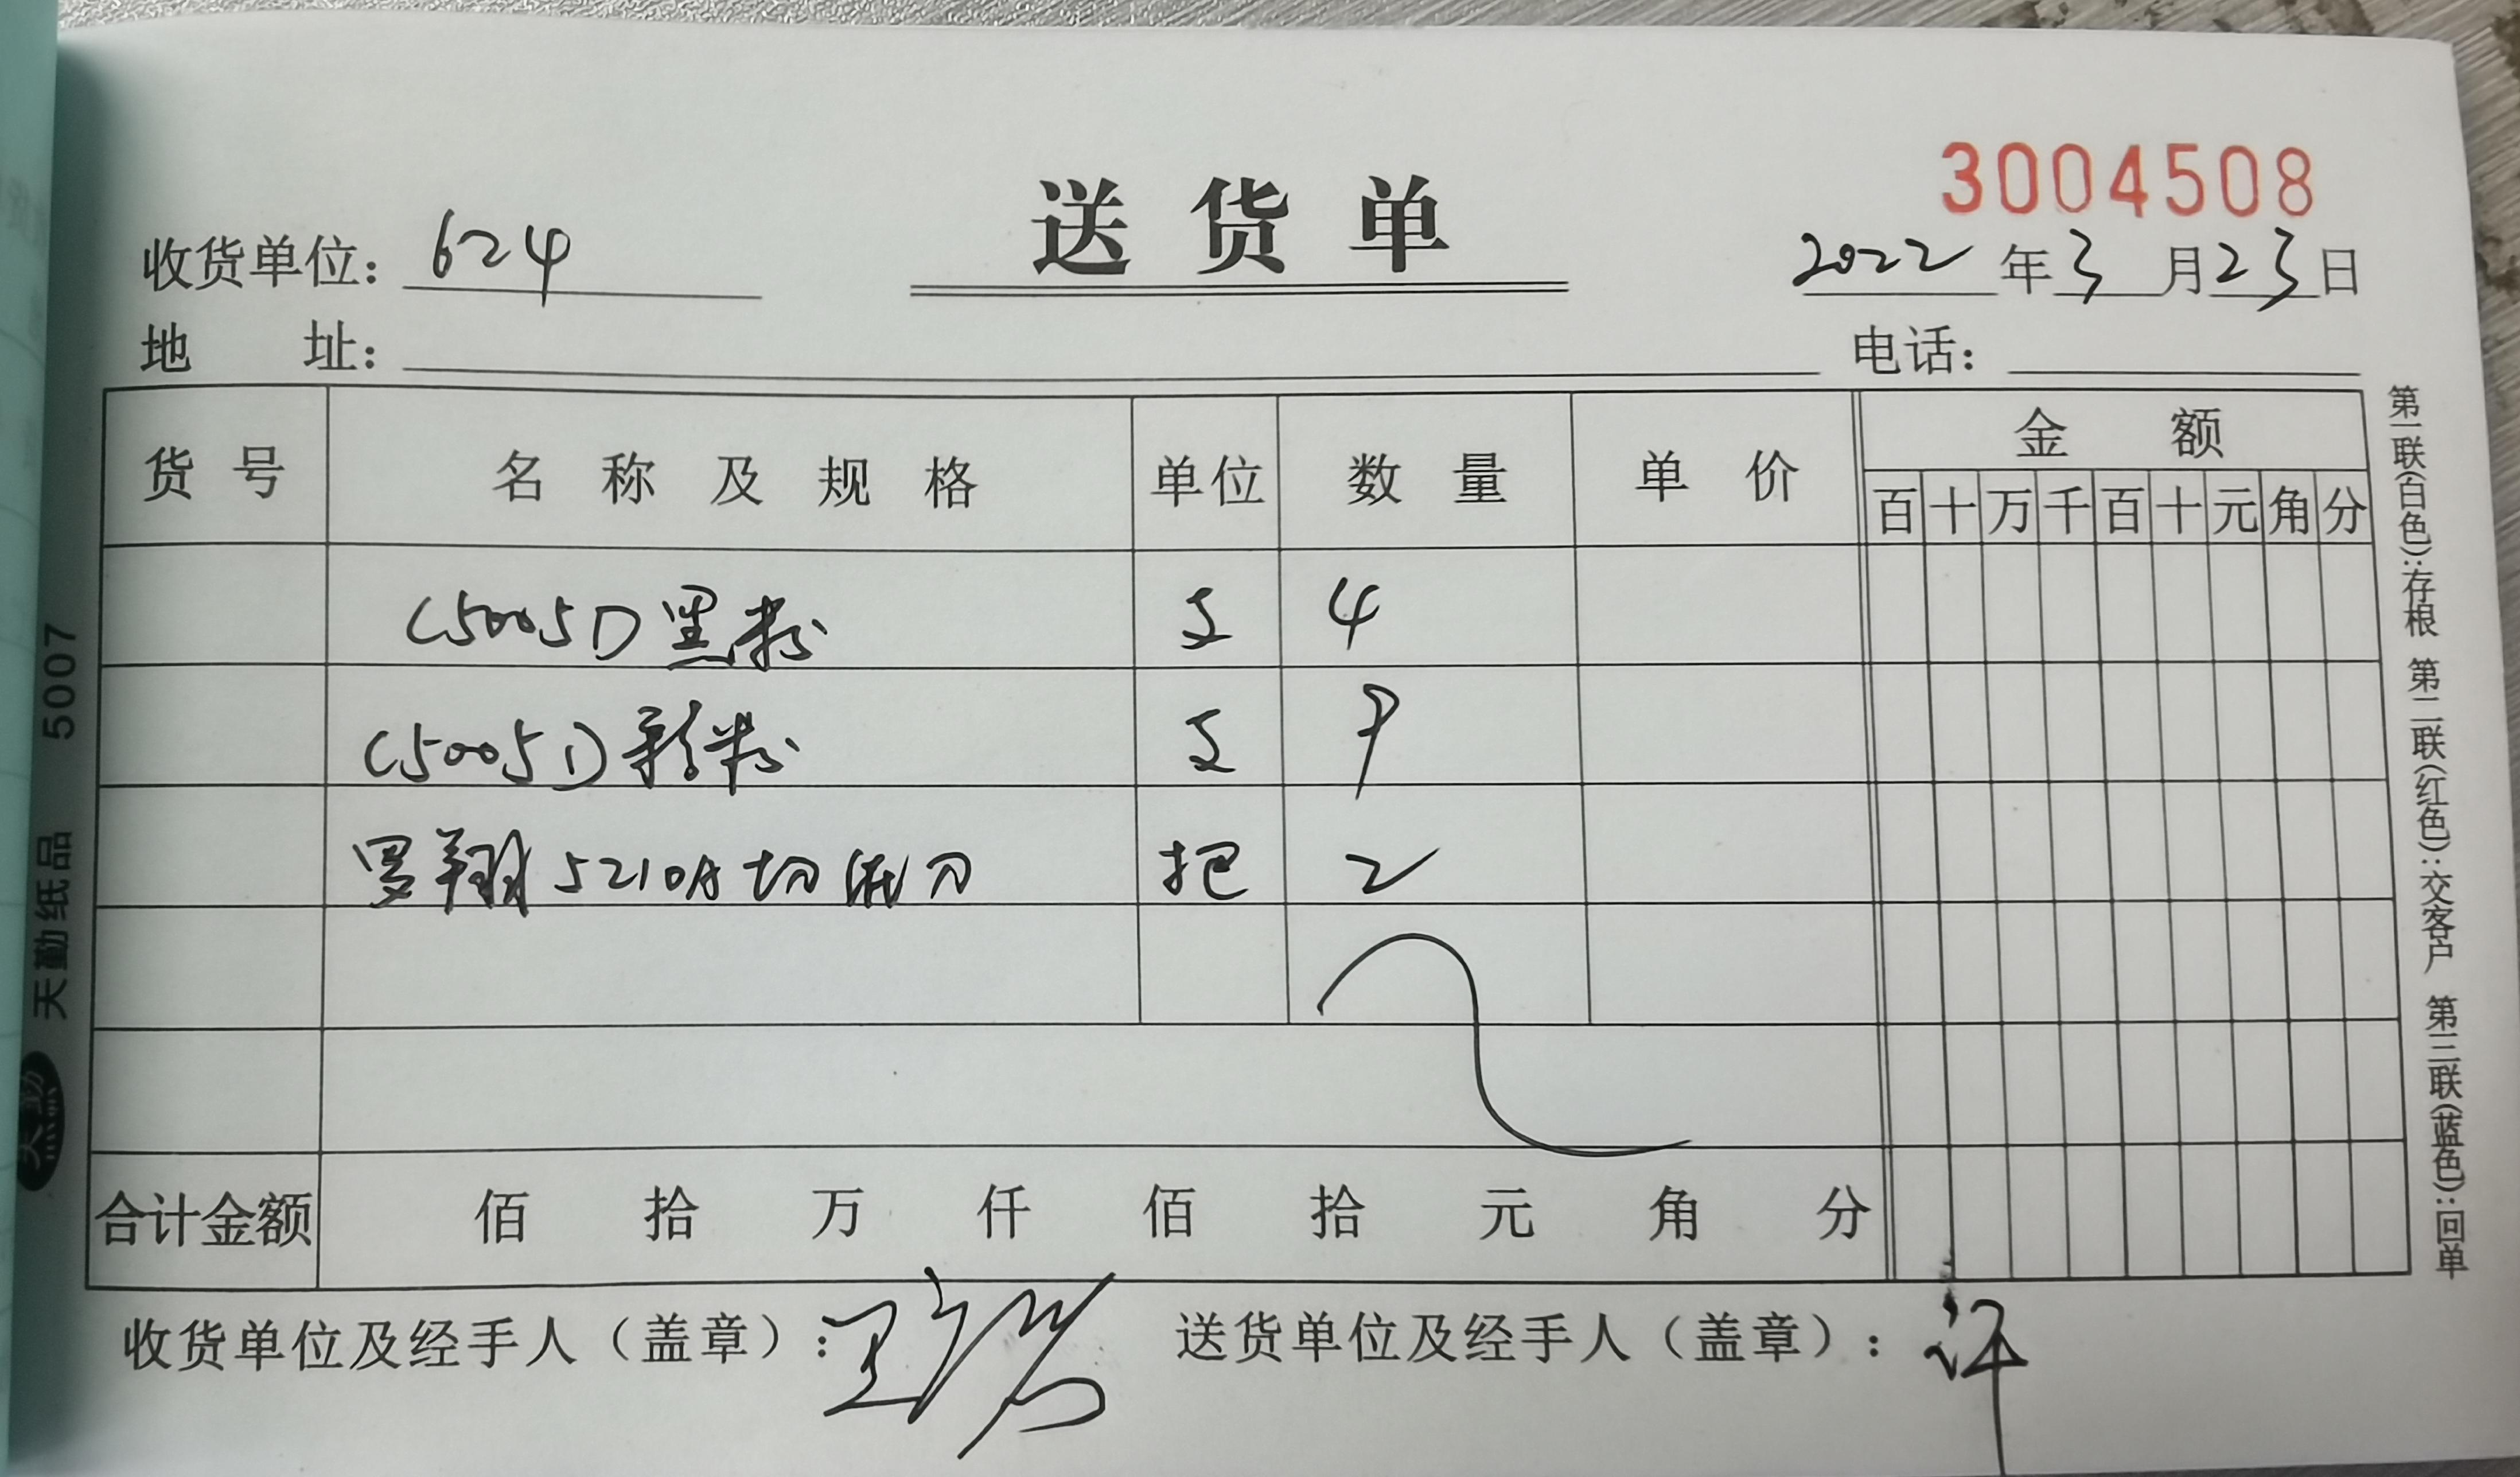 3004508
送货单
收货单位: 624 2022年3月23日
地 址: 电话:
货号 名称及规格 单位 数量 单价 金额
百 十 万 千 百 十 元 角 分
C5005D黑粉 支 4
C5005D彩粉 支 9
罗翔5210A切纸刀 把 2
合计金额 佰 拾 万 仟 佰 拾 元 角 分
收货单位及经手人(盖章): 送货单位及经手人(盖章): 许
第一联(白色):存根 第二联(红色):交客户 第三联(蓝色):回单
天勤纸品 5007
天勤